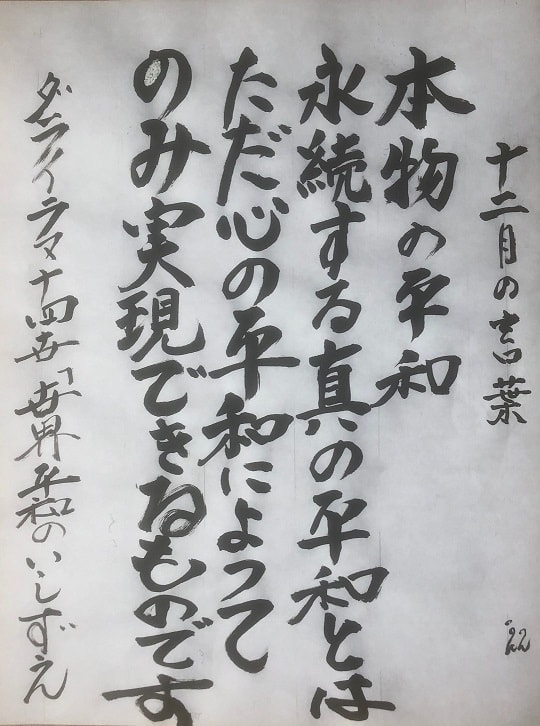 十二月の言葉
本物の平和
永続する真の平和とは
ただ心の平和によって
のみ実現できるものです
ダライラマ十四世「世界平和のいしずえ
'22